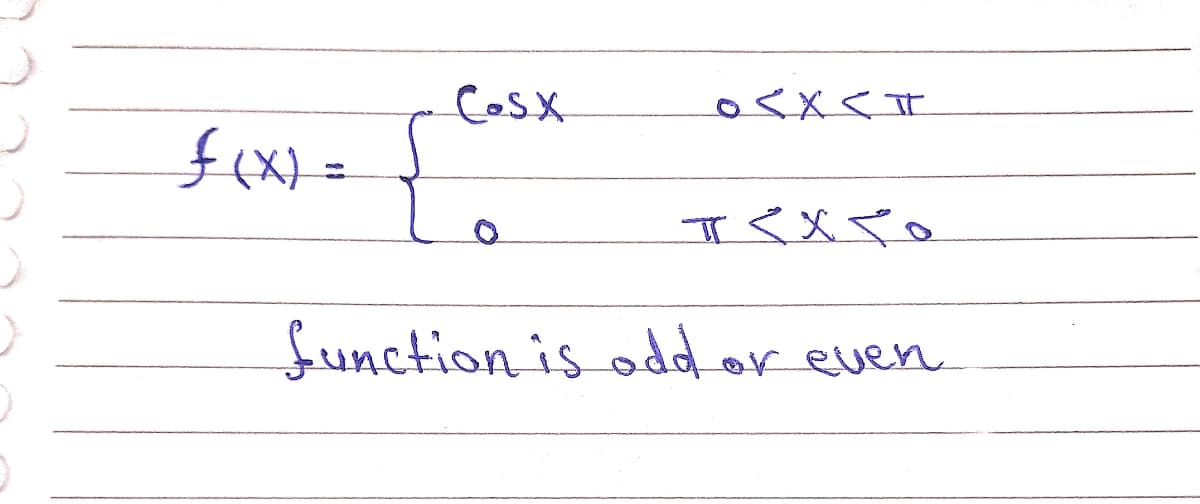 Cosx 0<x<π
f(x) = {
0 π<x<0
function is odd or even